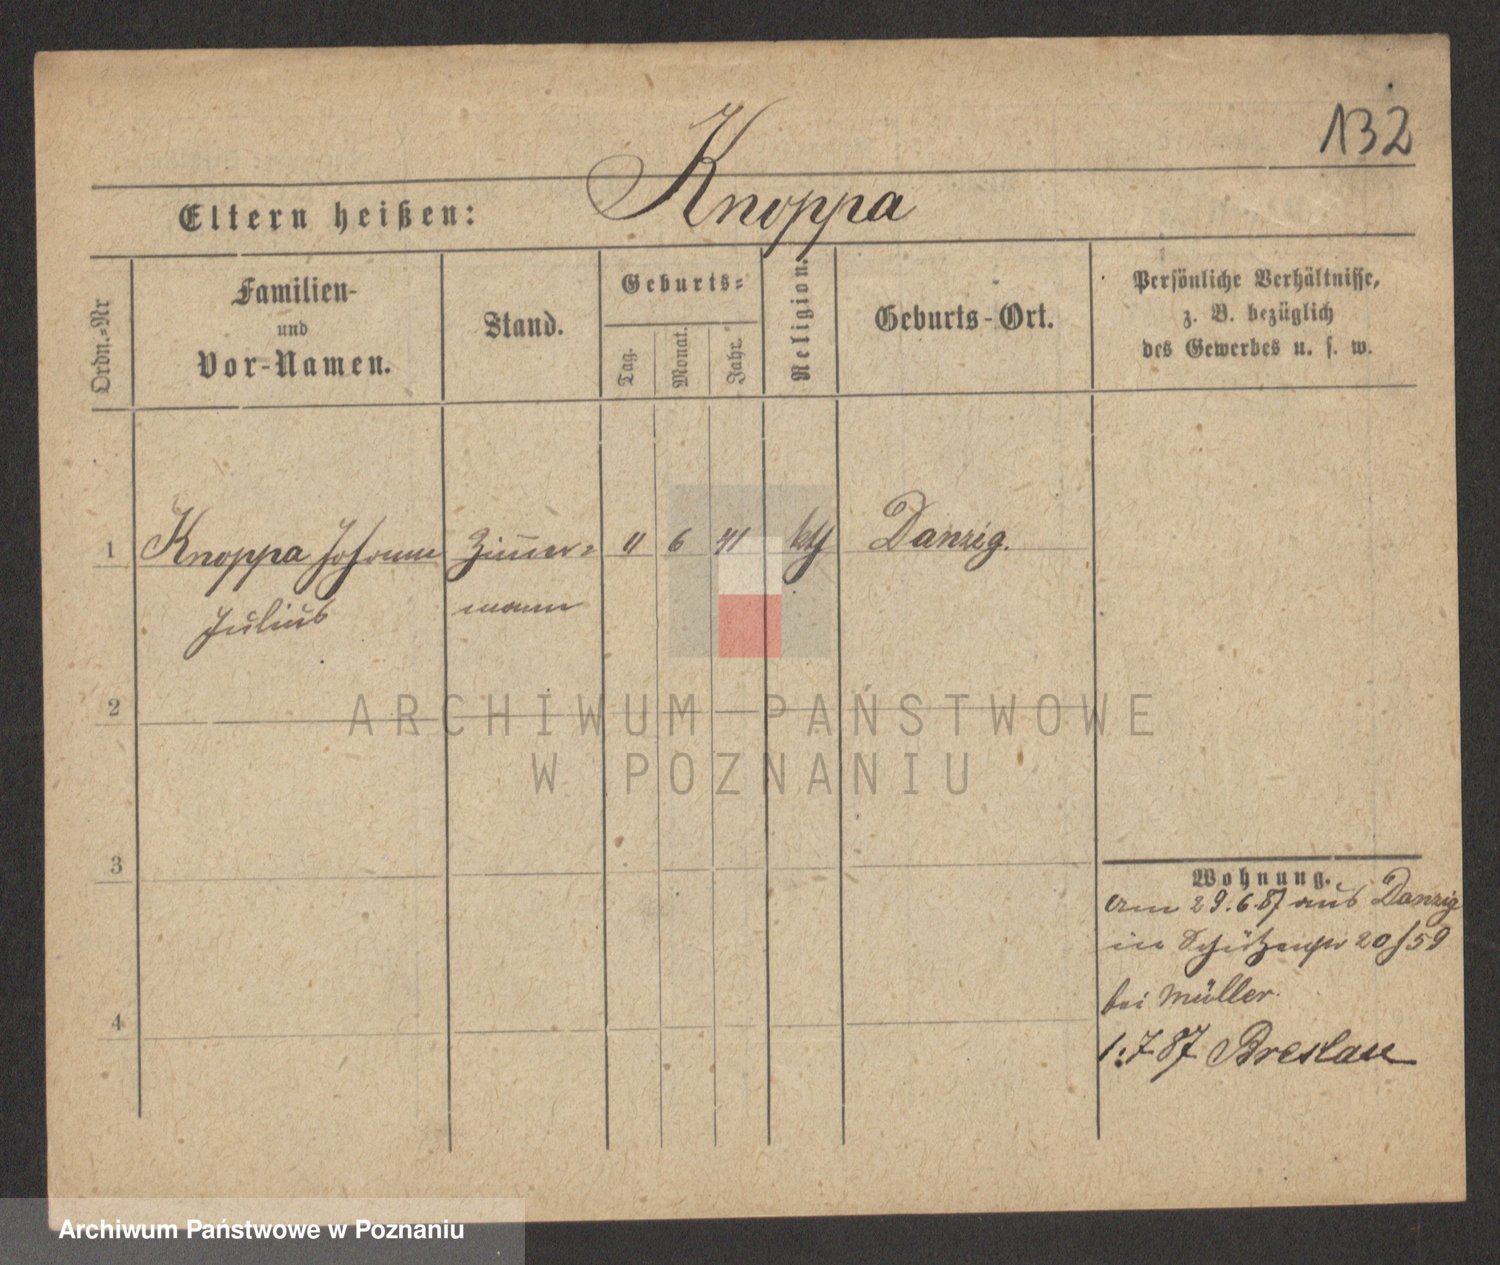 132
Knoppa
Eltern heißen:
Ordn.-Nr
Familien-
und
Vor-Namen.
Stand.
Geburts-
Tag.
Monat.
Jahr.
Religion.
Geburts-Ort.
Persönliche Verhältnisse,
z. B. bezüglich
des Gewerbes u. s. w.
1 Knoppa Johann Zimmer- 11 6 41 kth Danzig.
Julius mann
2
ARCHIWUM PAŃSTWOWE
W POZNANIU
3
Wohnung.
am 29.6.87 aus Danzig
in Schützenstr 20/59
bei Müller.
4
1.7 87 Breslau
Archiwum Państwowe w Poznaniu